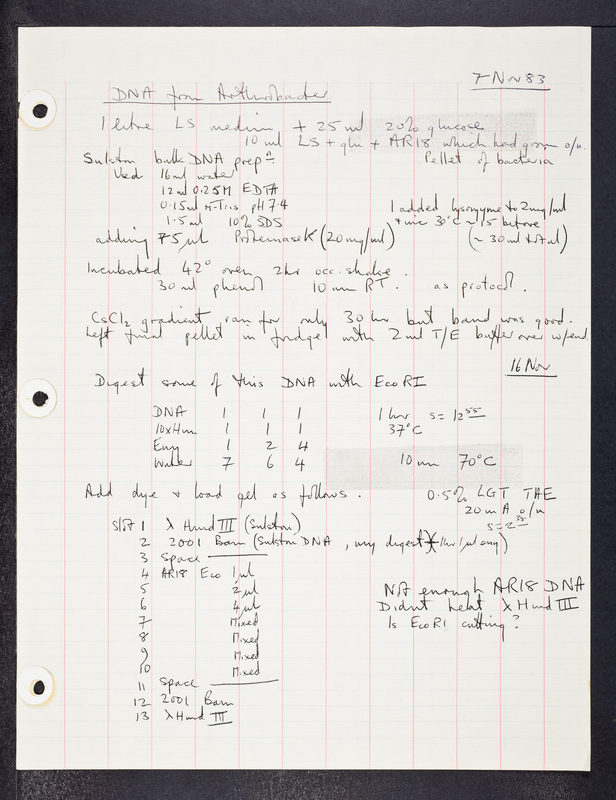 7 Nov 83
DNA from Arthrobacter
1 litre LS medium + 25 ml 20% glucose
10 ml LS + glu + AR18 which had grown o/n.
Sulston bulk DNA prepn Pellet of bacteria
Used 16ml water
12ml 0.25M EDTA
0.15ml M-Tris pH 7.4 I added lysozyme to 2mg/ml
1.5ml 10% SDS + inc 30°C ~15 before
adding 75µl Proteinase K (20mg/ml) (~30ml total)
Incubated 42° oven 2hr occ. shake.
30ml phenol 10 min RT. as protocol.
CsCl2 gradient ran for only 30hr but band was good.
Left final pellet in fridge with 2ml T/E buffer over w/end
16 Nov
Digest some of this DNA with EcoRI
DNA 1 1 1 1hr s = 12 55
10xHin 1 1 1 37°C
Enzy 1 2 4
Water 7 6 4 10 min 70°C
Add dye & load gel as follows. 0.5% LGT THE
20mA o/n
Slot 1 λ Hind III (Sulston)
2 2001 Bam (Sulston DNA, my digest 1hr 1µl enzy)
3 Space
4 AR18 Eco 1µl
5 2µl Not enough AR18 DNA
6 4µl Didnt heat λ Hind III
7 Mixed Is EcoRI cutting?
8 Mixed
9 Mixed
10 Mixed
11 Space
12 2001 Bam
13 λ Hind III